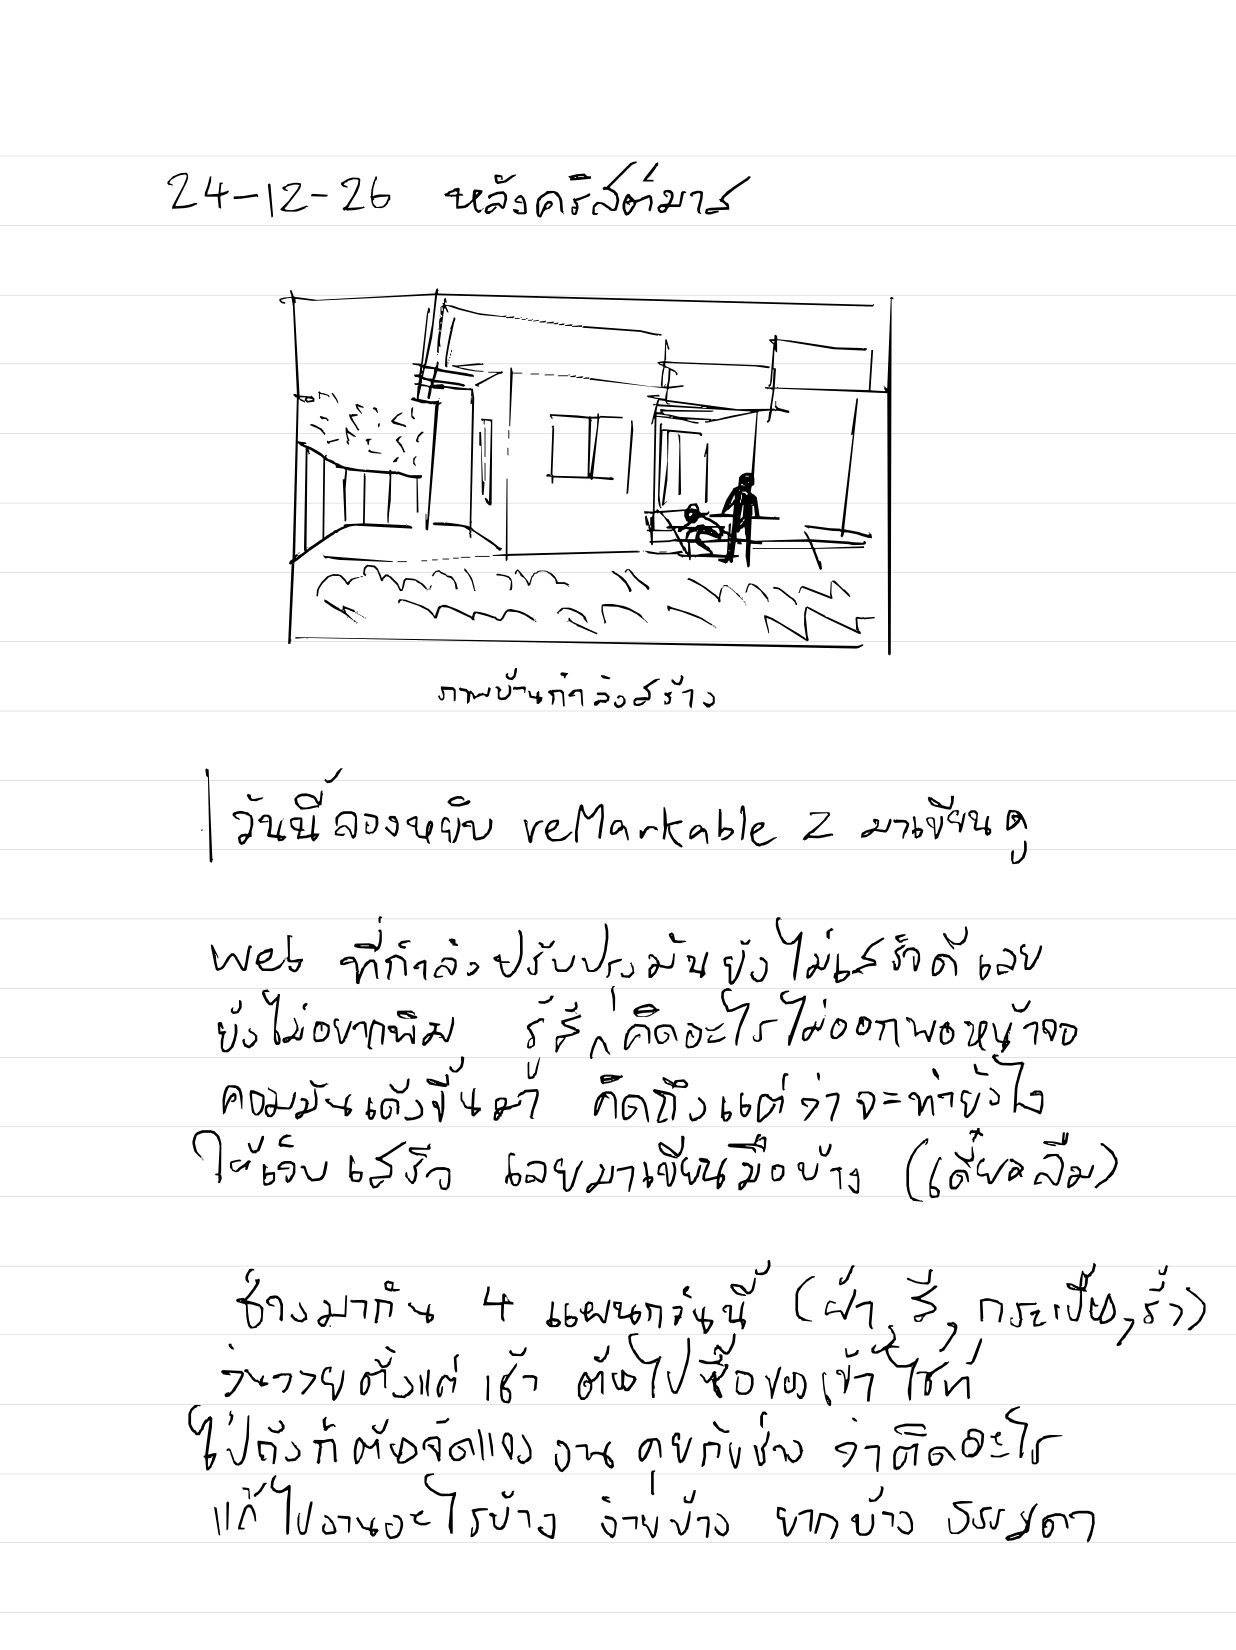 24-12-26 หลังคริสต์มาส
ภาพบ้านกำลังสร้าง
วันนี้ลองหยิบ reMarkable 2 มาเขียนดู
web ที่กำลังปรับปรุงมันยังไม่เสร็จดีเลย
ยังไม่อยากพิม รู้สึกคิดอะไรไม่ออกพอหน้าจอ
คอมมันเด้งขึ้นมา คิดถึงแต่ว่าจะทำยังไง
ให้เว็บเสร็จ เลยมาเขียนมือบ้าง (เดี๋ยวลืม)
ช่างมากัน 4 แผนกวันนี้ (ฝ้า, สี, กระเบื้อง, รั้ว)
วุ่นวายตั้งแต่เช้า ต้องไปซื้อของเข้าไซท์
ไปถึงก็ต้องจัดแจงงาน คุยกับช่าง ว่าติดอะไร
แก้ไขงานอะไรบ้าง ง่ายบ้าง ยากบ้าง ธรรมดา